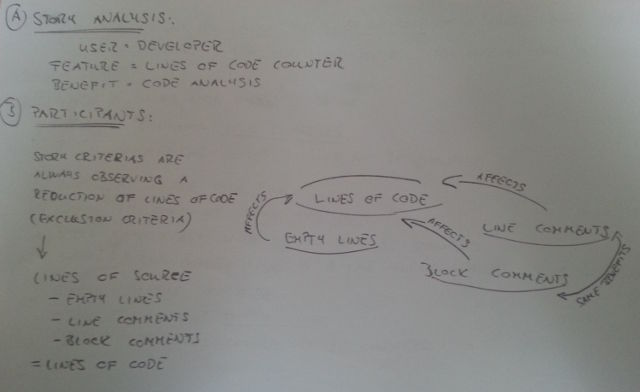 A STORY ANALYSIS:
USER = DEVELOPER
FEATURE = LINES OF CODE COUNTER
BENEFIT = CODE ANALYSIS
PARTICIPANTS:
STORY CRITERIAS ARE
ALWAYS OBSERVING A
REDUCTION OF LINES OF CODE
(EXCLUSION CRITERIA)
LINES OF SOURCE
- EMPTY LINES
- LINE COMMENTS
- BLOCK COMMENTS
= LINES OF CODE
LINES OF CODE
AFFECTS
LINE COMMENTS
AFFECTS
EMPTY LINES
AFFECTS
BLOCK COMMENTS
SAME BENEFITS